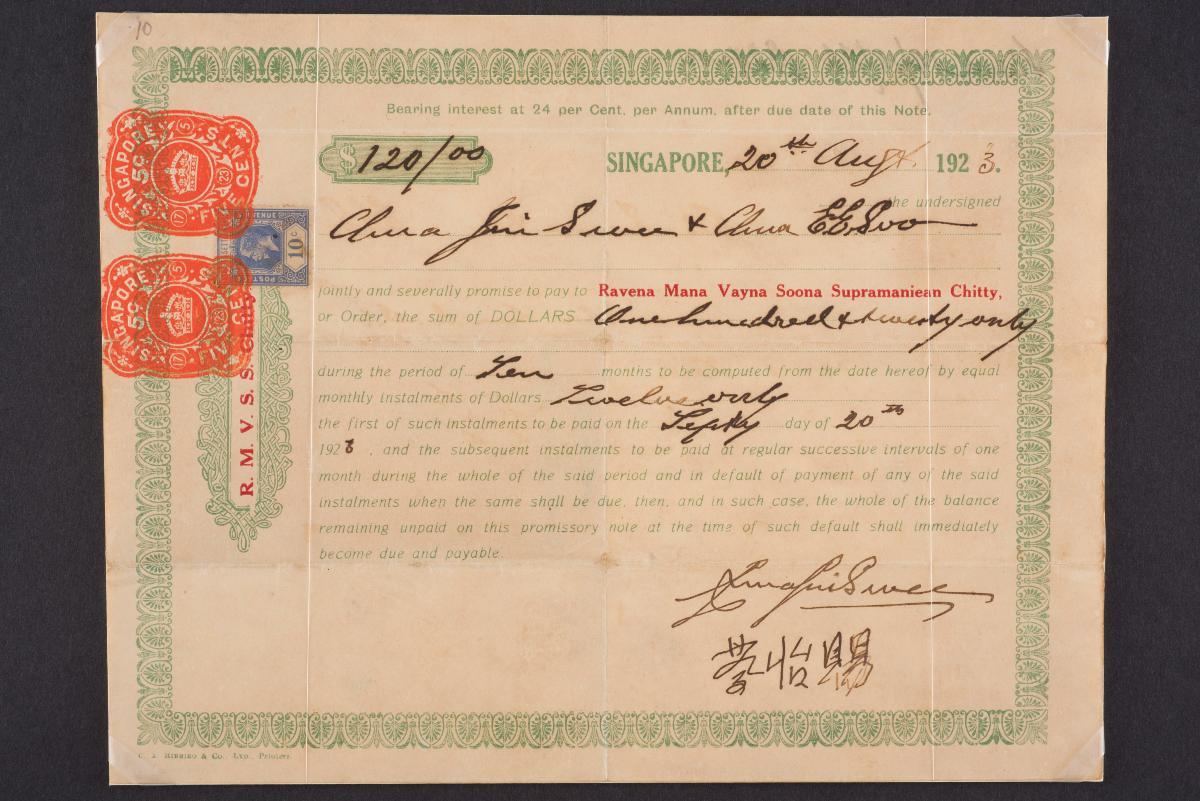 10
Bearing interest at 24 per Cent. per Annum, after due date of this Note.
$ 120/00 SINGAPORE, 20th Augt 1923.
the undersigned
Chua Jin Swee & Chua E. E. Soo
jointly and severally promise to pay to Ravena Mana Vayna Soona Supramaniean Chitty,
or Order, the sum of DOLLARS One hundred & twenty only
during the period of Ten months to be computed from the date hereof by equal
monthly instalments of Dollars Twelve only
the first of such instalments to be paid on the Septr day of 20th
1923, and the subsequent instalments to be paid at regular successive intervals of one
month during the whole of the said period and in default of payment of any of the said
instalments when the same shall be due, then, and in such case, the whole of the balance
remaining unpaid on this promissory note at the time of such default shall immediately
become due and payable.
Chua Jin Swee
怡賜
SINGAPORE 5C FIVE CENTS 5 23 17
REVENUE POSTAGE 10c
SINGAPORE 5C FIVE CENTS 5 23 17
R. M. V. S. S. Chitty
C. A. RIBEIRO & CO., LTD., Printers.